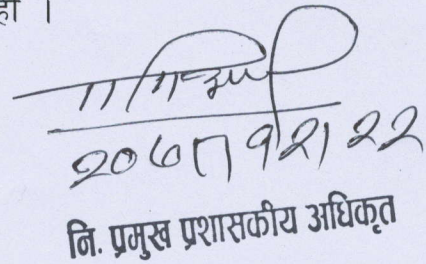 हो ।
२०७८।१२।२२
नि. प्रमुख प्रशासकीय अधिकृत